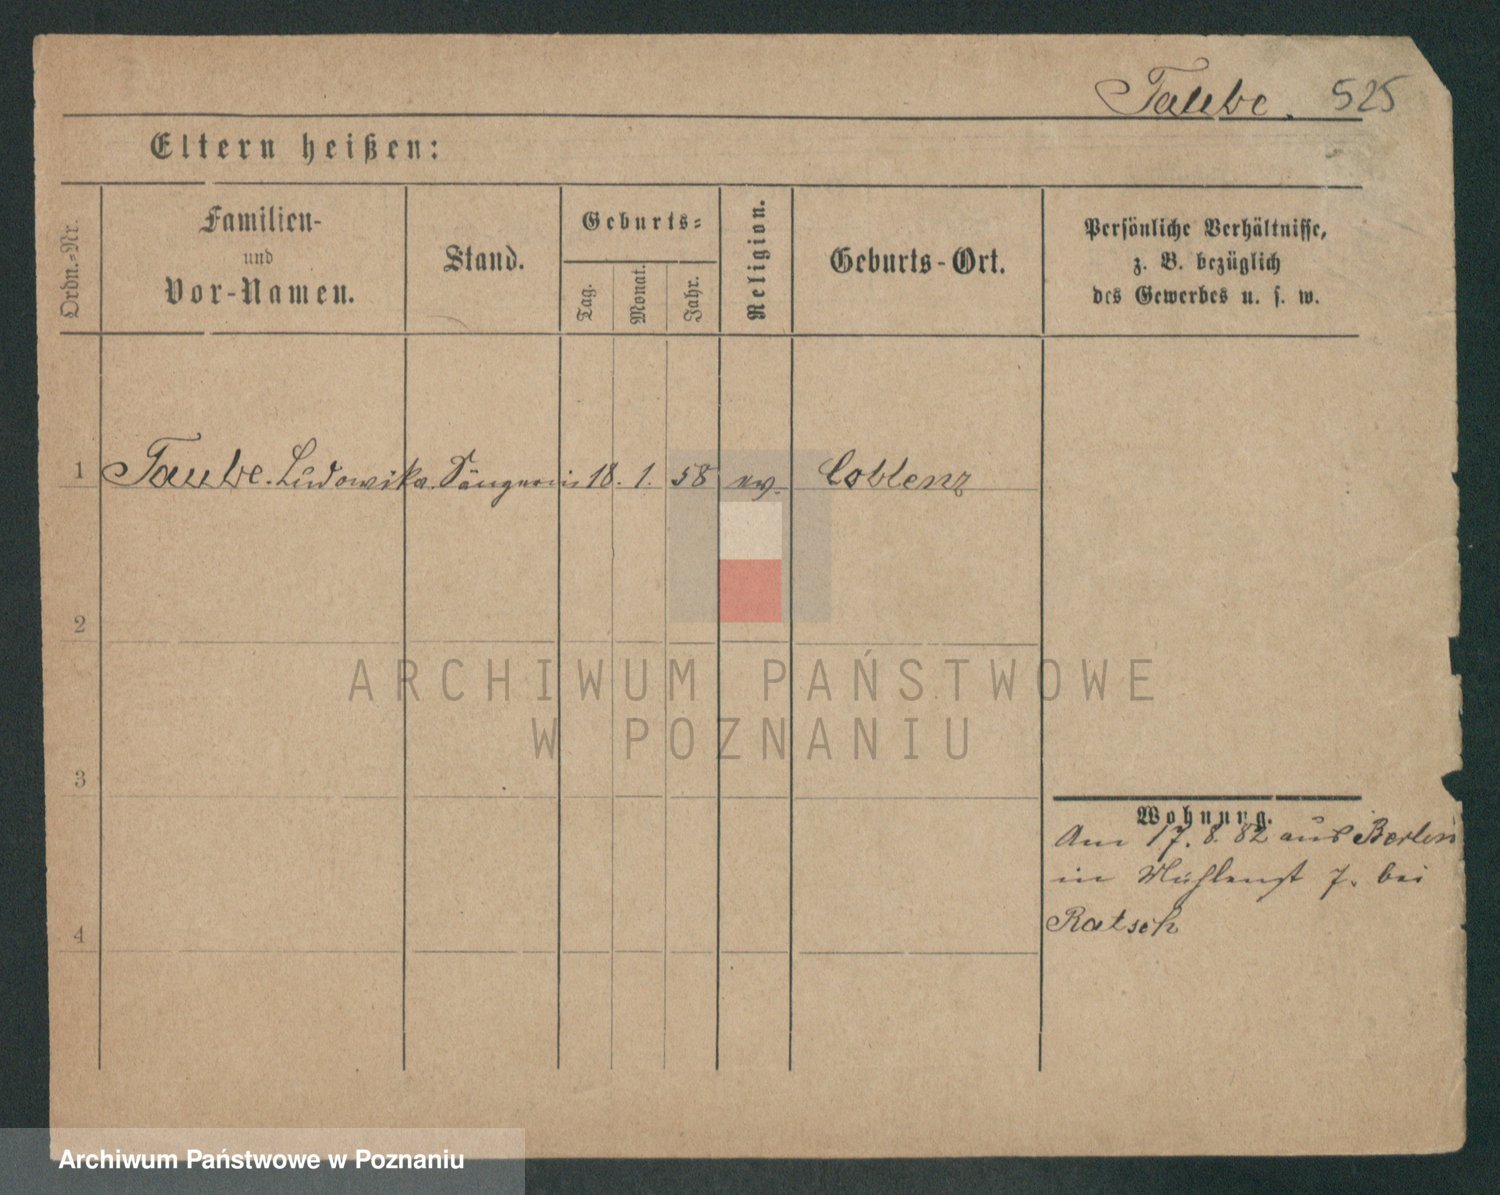 Taube. 525
Eltern heißen:
Ordn.-Nr.
Familien-
und
Vor-Namen.
Stand.
Geburts-
Tag.
Monat.
Jahr.
Religion.
Geburts-Ort.
Persönliche Verhältnisse,
z. B. bezüglich
des Gewerbes u. s. w.
1 Taube. Ludowika. Sängerin 18. 1. 58 ev. Coblenz
2
ARCHIWUM PAŃSTWOWE
W POZNANIU
3
Wohnung.
Am 17. 8. 82 aus Berlin
in Mühlenst 7. bei
Ratsch
4
Archiwum Państwowe w Poznaniu